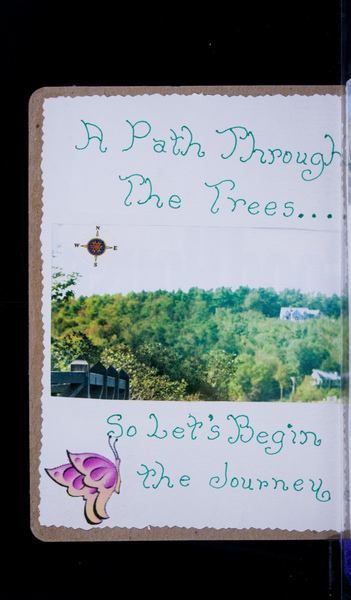 A Path Through
The Trees...
N
W E
S
So Let's Begin
the Journey